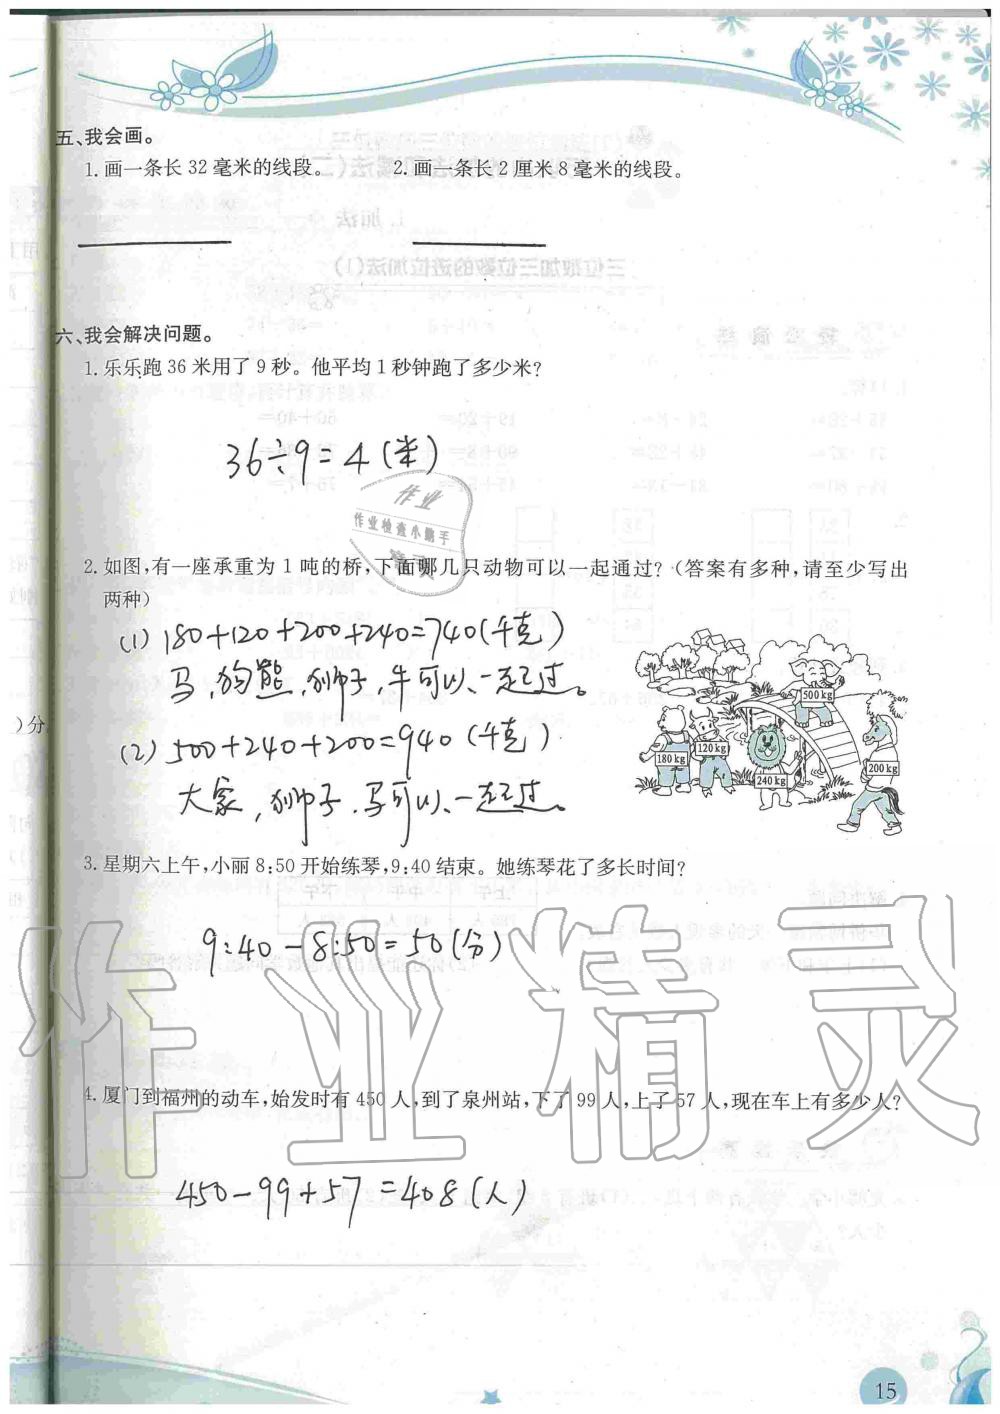 五、我会画。
1.画一条长 32 毫米的线段。 2.画一条长 2 厘米 8 毫米的线段。
六、我会解决问题。
1.乐乐跑 36 米用了 9 秒。他平均 1 秒钟跑了多少米?
36÷9=4(米)
作业
作业检查小助手
2.如图,有一座承重为 1 吨的桥,下面哪几只动物可以一起通过?(答案有多种,请至少写出
两种)
(1) 180+120+200+240=740(千克)
马,狗熊,狮子,牛可以一起过。
(2) 500+240+200=940(千克)
大象,狮子,马可以一起过。
500 kg
180 kg
120 kg
240 kg
200 kg
3.星期六上午,小丽 8:50 开始练琴,9:40 结束。她练琴花了多长时间?
9:40-8:50=50(分)
作业精灵
4.厦门到福州的动车,始发时有 450 人,到了泉州站,下了 99 人,上了 57 人,现在车上有多少人?
450-99+57=408(人)
)分
15